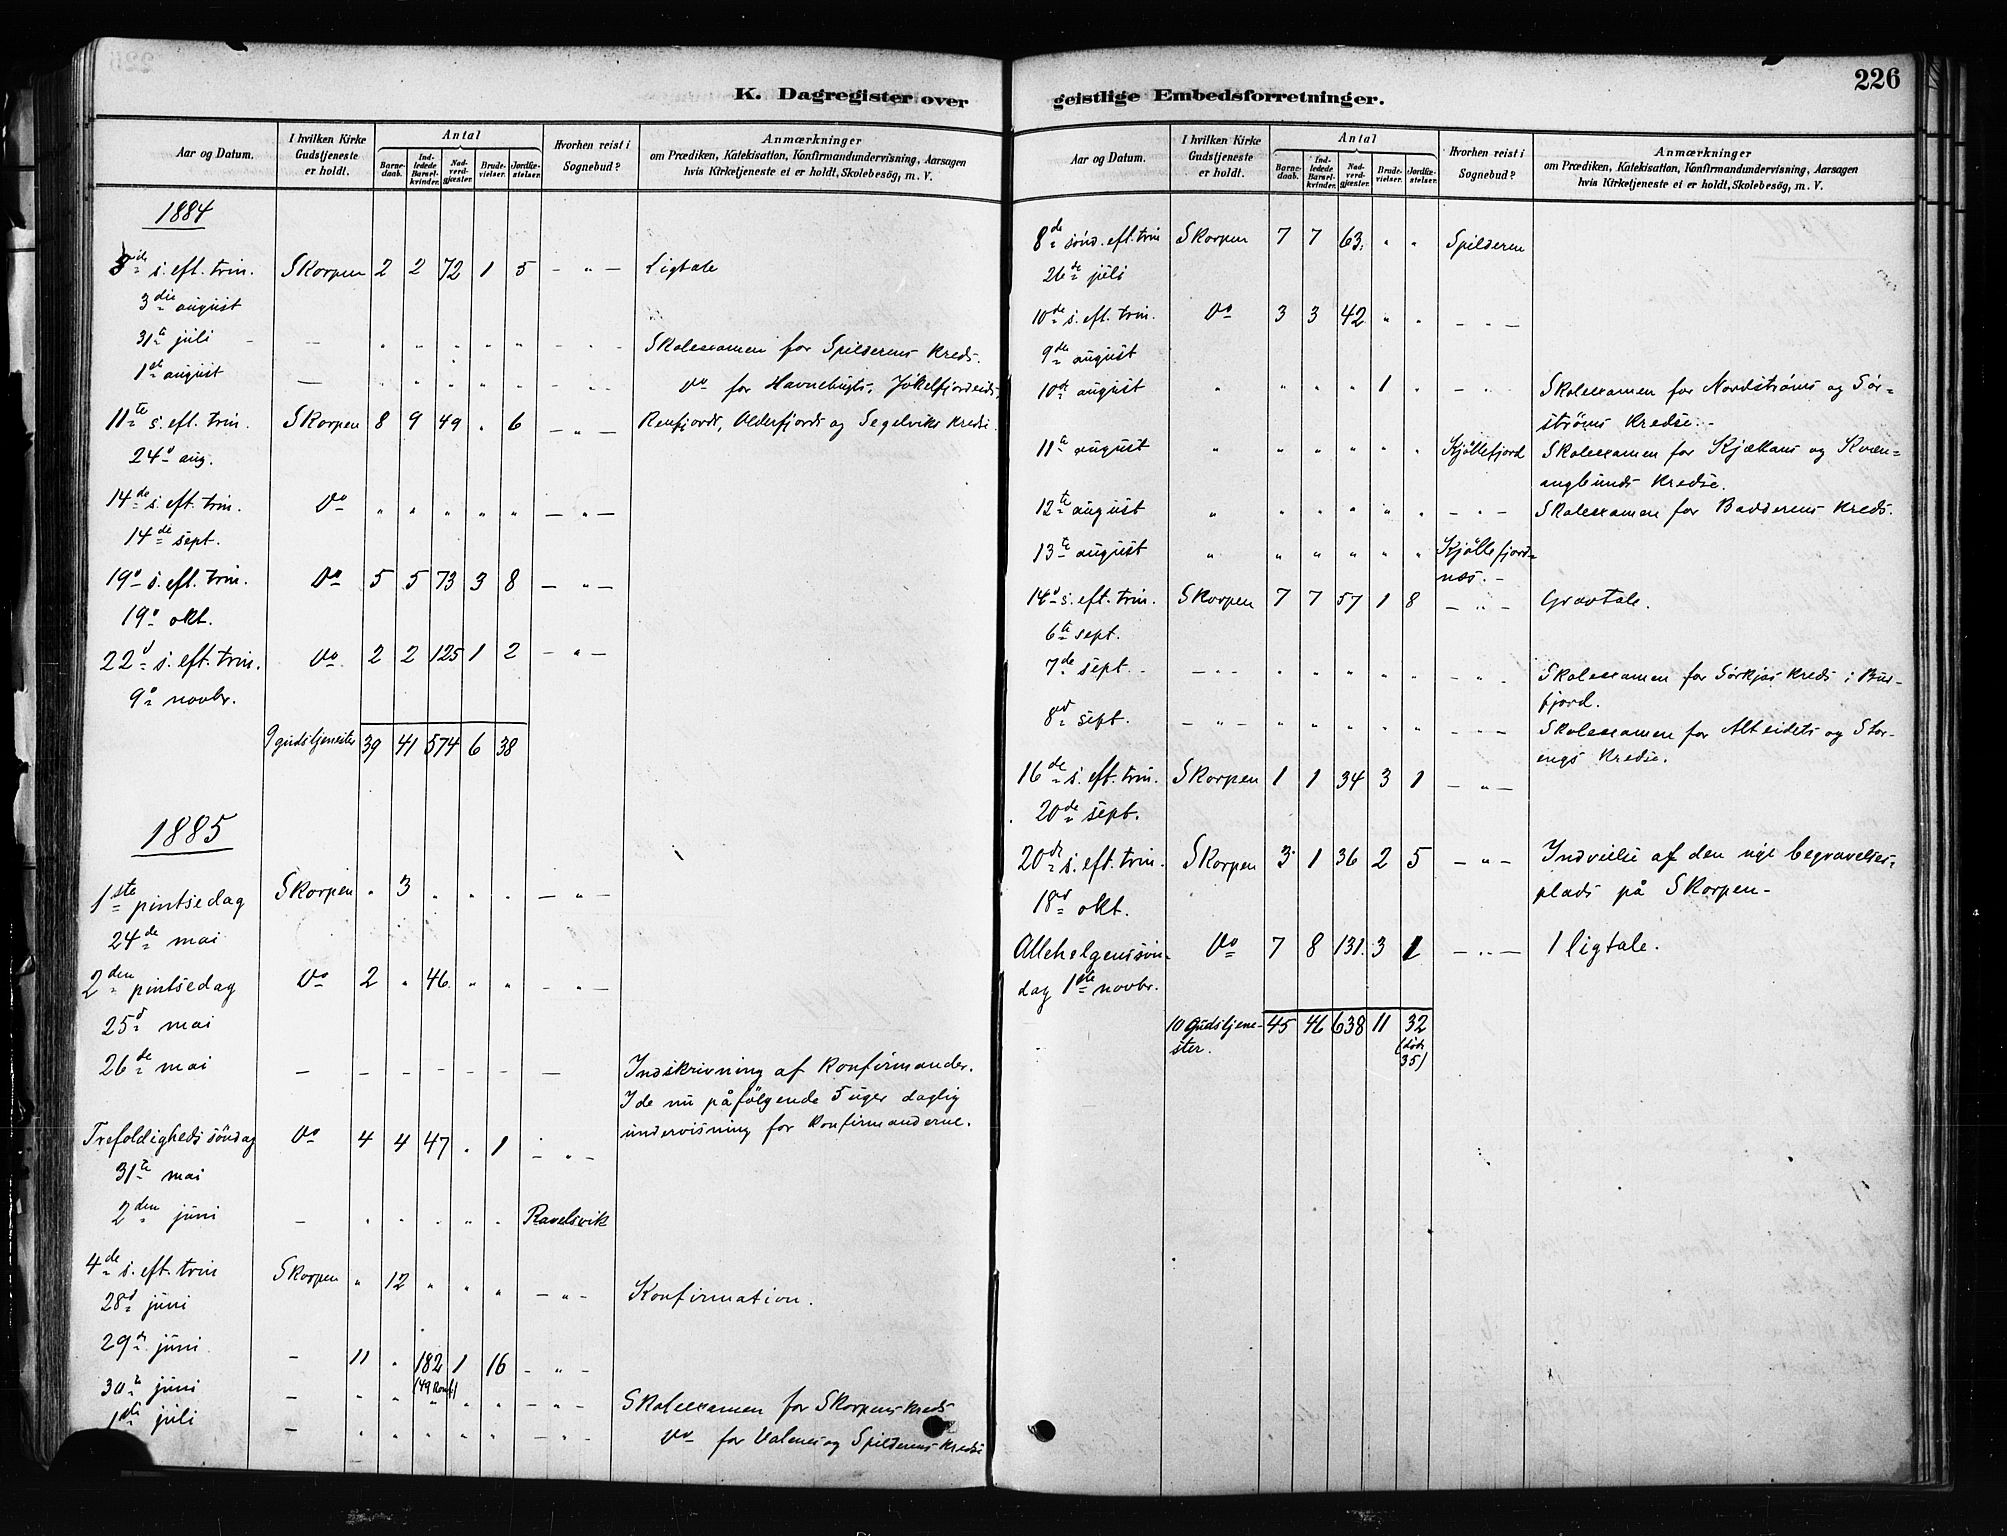 K. Dagregister over
Aar og Datum.
I hvilken Kirke Gudstjeneste er holdt.
Antal
Barnedaab.
Indledede Barselkvinder.
Nadverdgjæster.
Brudevielser.
Jordfæstelser.
Hvorhen reist i Sognebud?
Anmærkninger
om Prædiken, Katekisation, Konfirmandundervisning, Aarsagen
hvis Kirketjeneste ei er holdt, Skolebesøg, m. V.
1884
8de s. eft. trin. Skorpen 2 2 72 1 5 — " — Ligtale
3die august
31te juli — — " " " " " — " — Skoleexamen for Spilderens Kreds.
1ste august — " " " " " — " — Do for Havnebugts, Jökelfjordeids,
11te s. eft. trin. Skorpen 8 9 49 " 6 — " — Renfjords, Olderfjords og Segelviks Kredse.
24d aug.
14de s. eft. trin. Do " " " " " — " —
14de sept.
19d s. eft. trin. Do 5 5 73 3 8 — " —
19d okt.
22d s. eft. trin. Do 2 2 125 1 2 — " —
9d novbr.
9 gudstjenester 39 41 574 6 38
1885
1ste pintsedag Skorpen " 3 " " " — " —
24de mai
2den pintsedag Do 2 " 46 " " — " —
25d mai
26de mai — — — — — — — Indskrivning af Konfirmander.
I de nu påfölgende 5 uger daglig
undervisning for Konfirmanderne.
Trefoldigheds söndag Do 4 4 47 " 1 — " —
31te mai
2den juni — " " " " " Ravelsvik
4de s. eft. trin Skorpen " 12 " " " — " — Konfirmation.
28d juni
29de juni — 11 " 182 1 16 — " —
(49 Konf.)
30te juni — " " " " " — " — Skoleexamen for Skorpens Kreds
1ste juli — " " " " " — " — Do for Valenes og Spilderens Kredse
geistlige Embedsforretninger.
226
Aar og Datum.
I hvilken Kirke Gudstjeneste er holdt.
Antal
Barnedaab.
Indledede Barselkvinder.
Nadverdgjæster.
Brudevielser.
Jordfæstelser.
Hvorhen reist i Sognebud?
Anmærkninger
om Prædiken, Katekisation, Konfirmandundervisning, Aarsagen
hvis Kirketjeneste ei er holdt, Skolebesög, m. V.
8de sönd. eft. trin Skorpen 7 7 63 " " Spilderen
26de juli
10de s. eft. trin. Do 3 3 42 " " — " —
9de august
10de august " " " " 1 " — " — Skoleexamen for Nordströms og Sör-
ströms Kredse.—
11te august " " " " " " Kjöllefjord Skoleexamen for Kjækans og Kvæn-
angbunds Kredse.
12te august " " " " " " — " — Skoleexamen for Badderens Kreds.
13te august " " " " " " Kjöllefjord-
næs.—
14d s. eft. trin. Skorpen 7 7 57 1 8 — " — Gravtale.
6te sept.
7de sept. — " — " " " " " — " — Skoleexamen for Sörkjos Kreds i Bur-
fjord.
8d sept. — " — " " " " " — " — Skoleexamen for Alteidets og Stor-
engs Kredse.
16de s. eft. trin. Skorpen 1 1 34 3 1 — " —
20de sept.
20de s. eft. trin. Skorpen 3 1 36 2 5 — " — Indvielse af den nye begravelses-
plads på Skorpen—
18d okt.
Allehelgenssön- Do 7 8 131 3 1 — " — 1 ligtale.
dag 1ste novbr.
10 Gudstjene- 45 46 638 11 32
ster.
(döde
35)